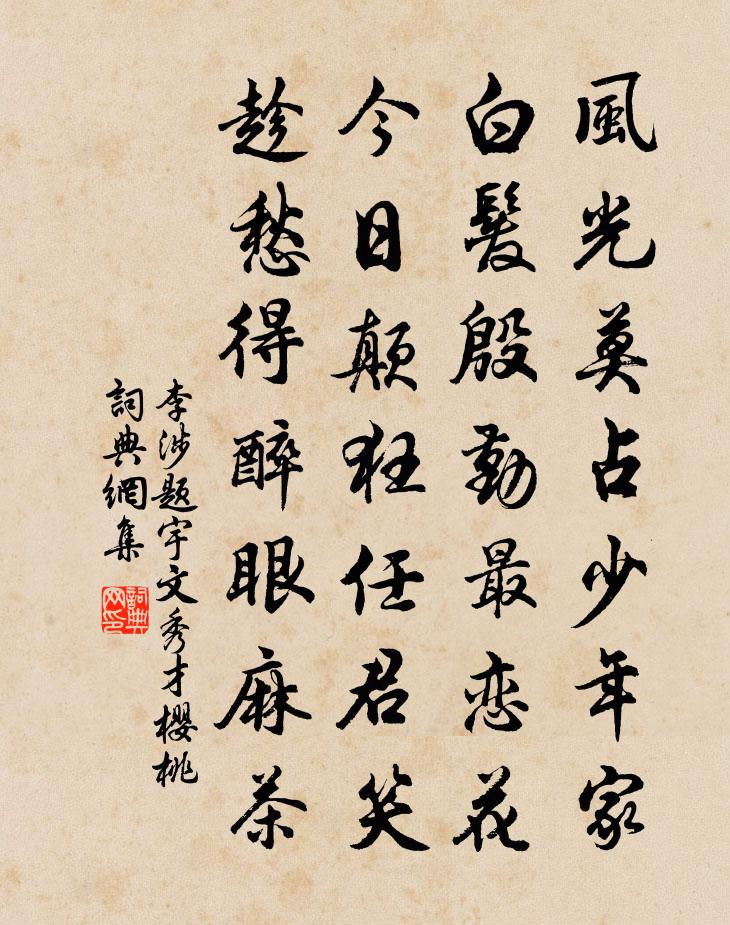 風光莫占少年家
白髮殷勤最恋花
今日顛狂任君笑
趁愁得醉眼麻茶
李涉题宇文秀才櫻桃
詞典網集
詞典
网印